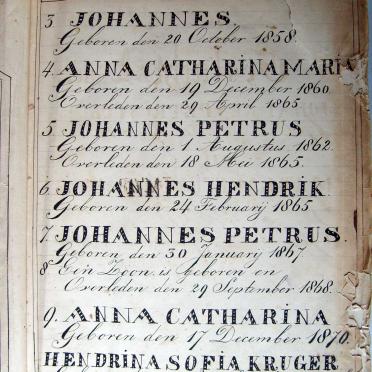 3 JOHANNES.
Geboren den 20 October 1858.
4. ANNA CATHARINA MARIA
Geboren den 19 December 1860.
Overleden den 29 April 1865.
5 JOHANNES PETRUS
Geboren den 1 Augustus 1862.
Overleden den 18 Mei 1865.
6 JOHANNES HENDRIK
Geboren den 24 Februarij 1865
7. JOHANNES PETRUS.
Geboren den 30 January 1867
8 Een Zoon is Geboren en
Overleden den 29 September 1868.
9. ANNA CATHARINA
Geboren den 17 December 1870.
HENDRINA SOFIA KRUGER